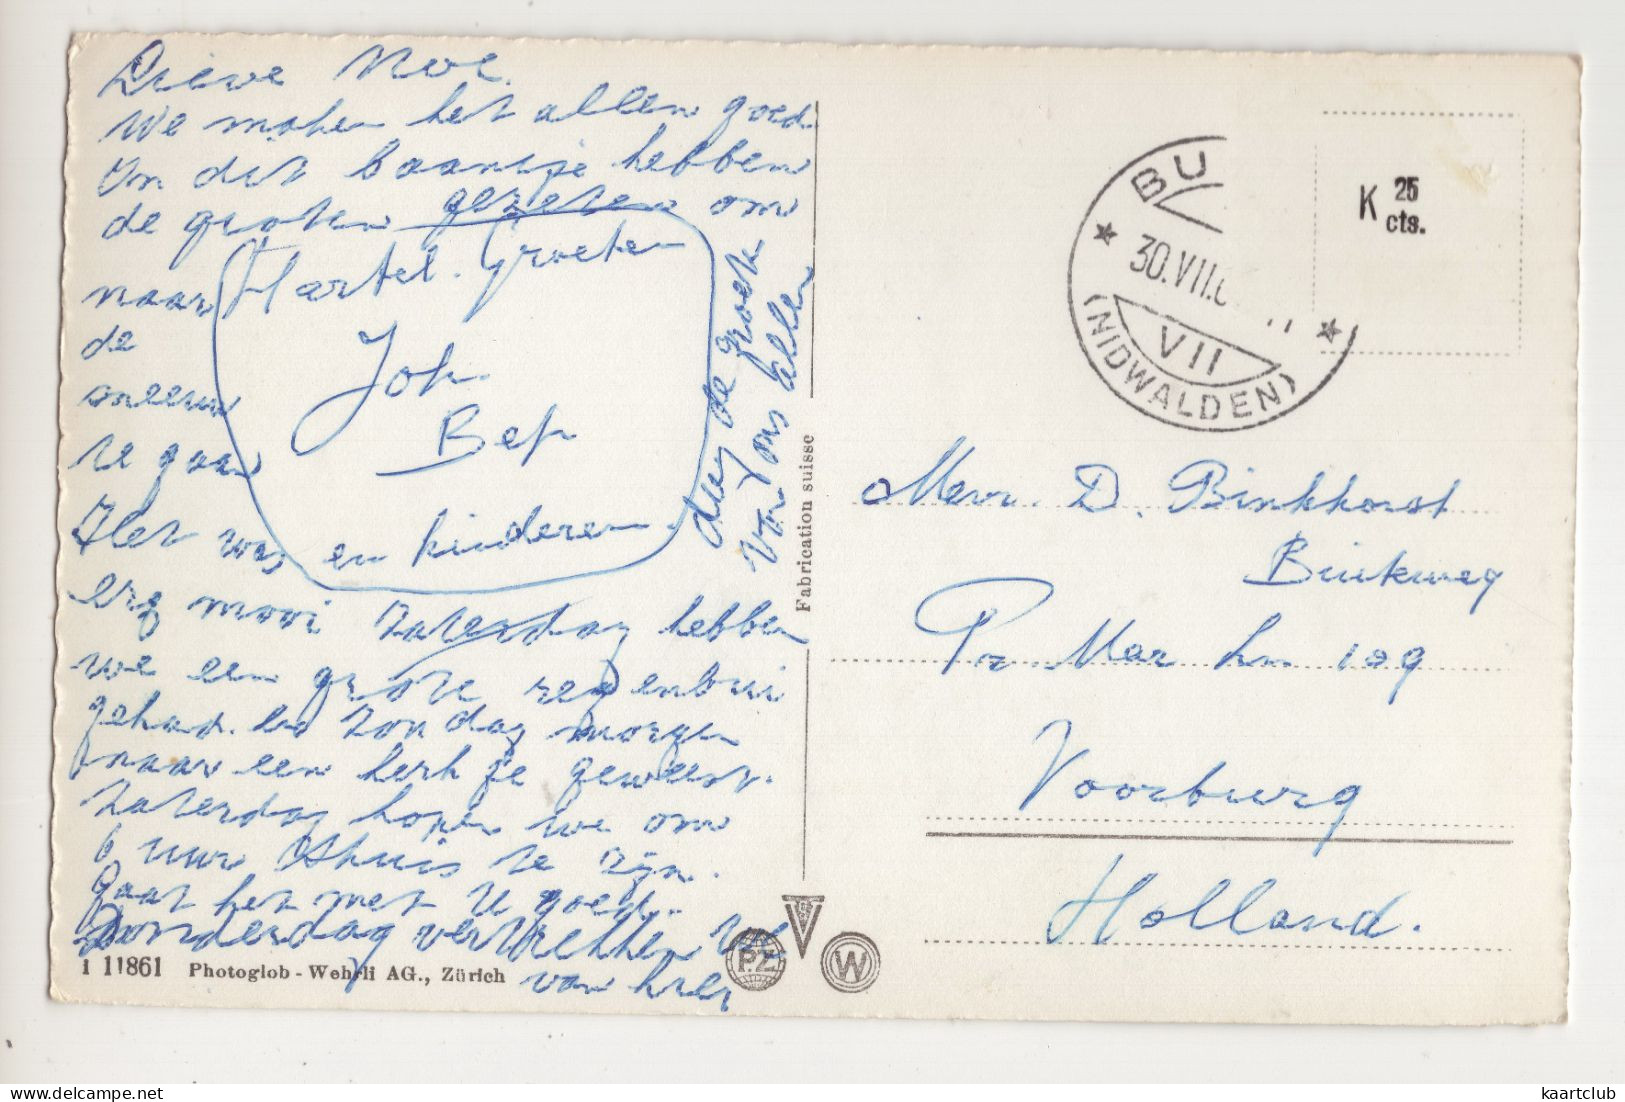 Lieve Moe.
We maken het allen goed.
In dit baantje hebben
de groten gezeten om
naar
de
sneeuw
te gaan
Het was
erg mooi Zaterdag hebben
we een grote regenbui
gehad. en Zondag morgen
naar een kerkje geweest.
Zaterdag hopen we om
6 uur thuis te zijn.
gaat het met U goed.
Donderdag vertrekken we
van hier
Hartel. Groeten
Joh
Bep
en kinderen.
de groeten
van ons allen
1 11861 Photoglob - Wehrli AG., Zürich
Fabrication suisse
P.Z
W
BU
30.VII.6
VII
(NIDWALDEN)
K 25 cts.
Mevr. D. Binkhorst
Pr. Mar Ln 109
Voorburg
Holland.